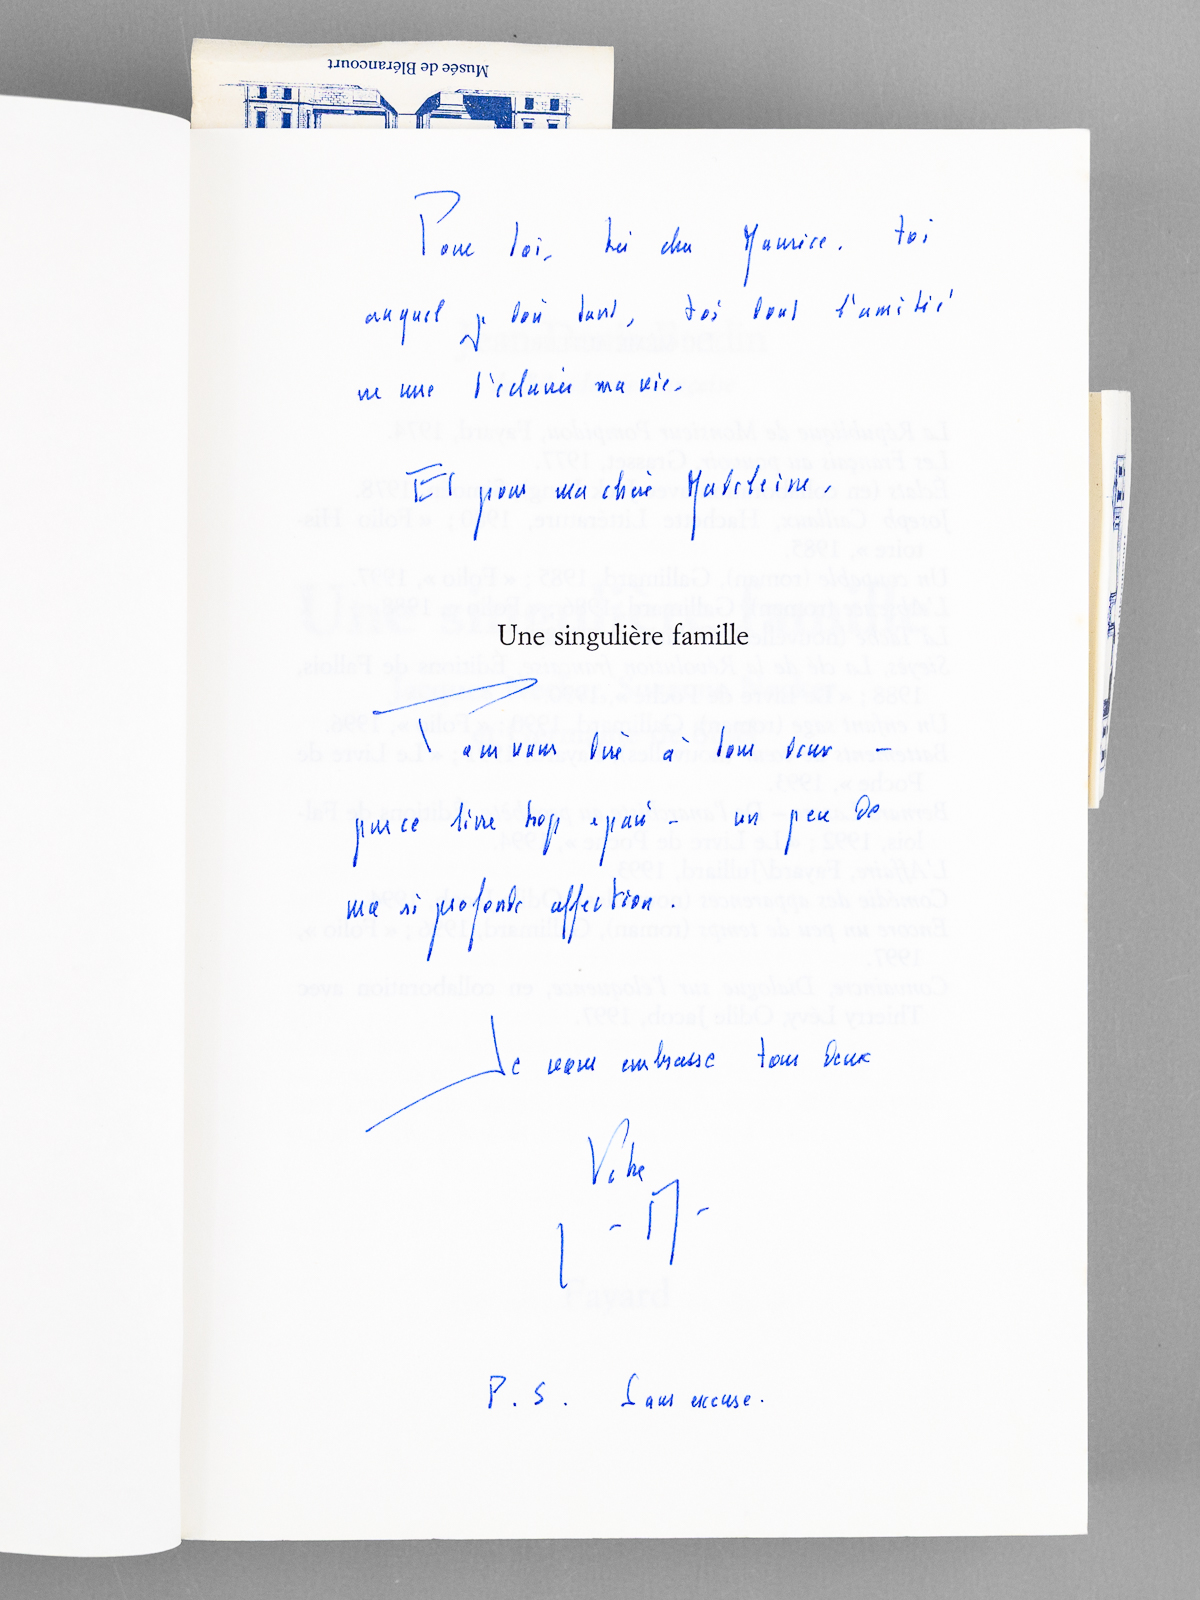 Musée de Blérancourt
Pour toi, très cher Maurice. toi
auquel je dois tant, toi dont l'amitié
ne cesse d'éclairer ma vie.
Et pour ma chère Madeleine.
Une singulière famille
Pour vous dire à tous deux -
par ce livre trop épais - un peu de
ma si profonde affection.
Je vous embrasse tous deux
Votre
J - D -
P. S. Sans excuse.